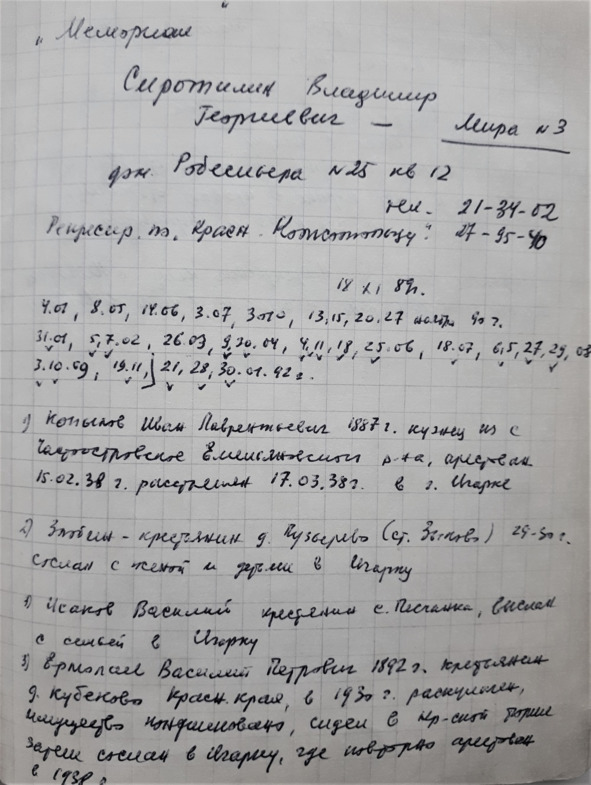 „Мемориал"
Сиротинин Владимир
Георгиевич — Мира №3
дом. Робеспьера №25 кв 12
тел. 21-34-02
Репресир. по Красн. 27-95-40
18 XI 89г.
4.01, 8.05, 14.06, 3.07, 13,15,20.27 ноябр 90 г.
31.01, 5,7.02, 26.03, 9,30.04, 4,11,18,25.06, 18.07, 6,5,27,29,08
3.10.09, 19.11, 21, 28, 30.01.92 г.
1) Копылов Иван Лаврентьевич 1887 г. кузнец из с
Частоостровское Емельяновского р-на, арестован
15.02.38 г. расстрелян 17.03.38г. в г. Игарке
2) Злобин - крестьянин д. Пузырево (ст. Зыково) 29-30 г.
сослан с женой и детьми в Игарку
3) Исаков Василий крестьянин с. Песчанка, выслан
с семьей в Игарку
3) Ермолаев Василий Петрович 1892 г. крестьянин
д. Кубеково Красн. края, в 1930 г. раскулачен,
имущество конфисковано, сидел в Кр-ской тюрьме
затем сослан в Игарку, где повторно арестован
в 1938 г